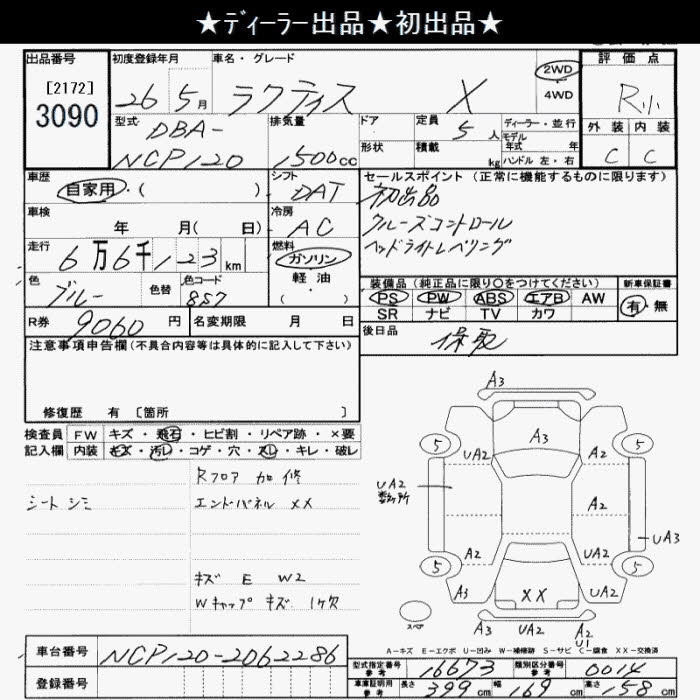 ★ディーラー出品★初出品★
出品番号 初度登録年月 車名・グレード 評価点
[2172] 26年 5月 ラクティス X 2WD R小
3090 4WD
型式 DBA- 排気量 ドア 定員 5人 ディーラー・並行 外装 内装
モデル年式 年
NCP120 1500cc 形状 積載 kg ハンドル 左・右 C C
車歴 シフト セールスポイント(正常に機能するものに限ります)
自家用・( ) DAT 初出品
車検 冷房 クルーズコントロール
年 月( 日) AC ヘッドライトレベリング
走行 燃料
6万6千123km ガソリン
色 色替 色コード 軽油 装備品(純正品に限り○をつけてください) 新車保証書
ブルー 8S7 ( ) PS PW ABS エアB AW 有・無
SR ナビ TV カワ
R券 9060円 名変期限 月 日 後日品
注意事項申告欄(不具合内容等は具体的に記入して下さい) 保取
修復歴 有 [箇所 ]
検査員 FW キズ・飛石・ヒビ割・リペア跡・×要
記入欄 内装 キズ・汚レ・コゲ・穴・スレ・キレ・破レ
Rフロア 加修
シート シミ エンドパネル XX
キズ E W2
Wキャップ キズ 1ケ欠
A3
5 A3 5
UA2 A2
UA2
A2
UA3
A2 UA2
5 5
A3 XX UA2
スペア UA2 A2
U1
A=キズ E=エクボ U=凹み W=補修跡 S=サビ C=腐食 XX=交換済
車台番号 NCP120-2062286
型式指定番号 参考 16673 類別区分番号 参考 0014
登録番号 車庫証明用 参考 長さ 399cm 幅 169cm 高さ 158cm